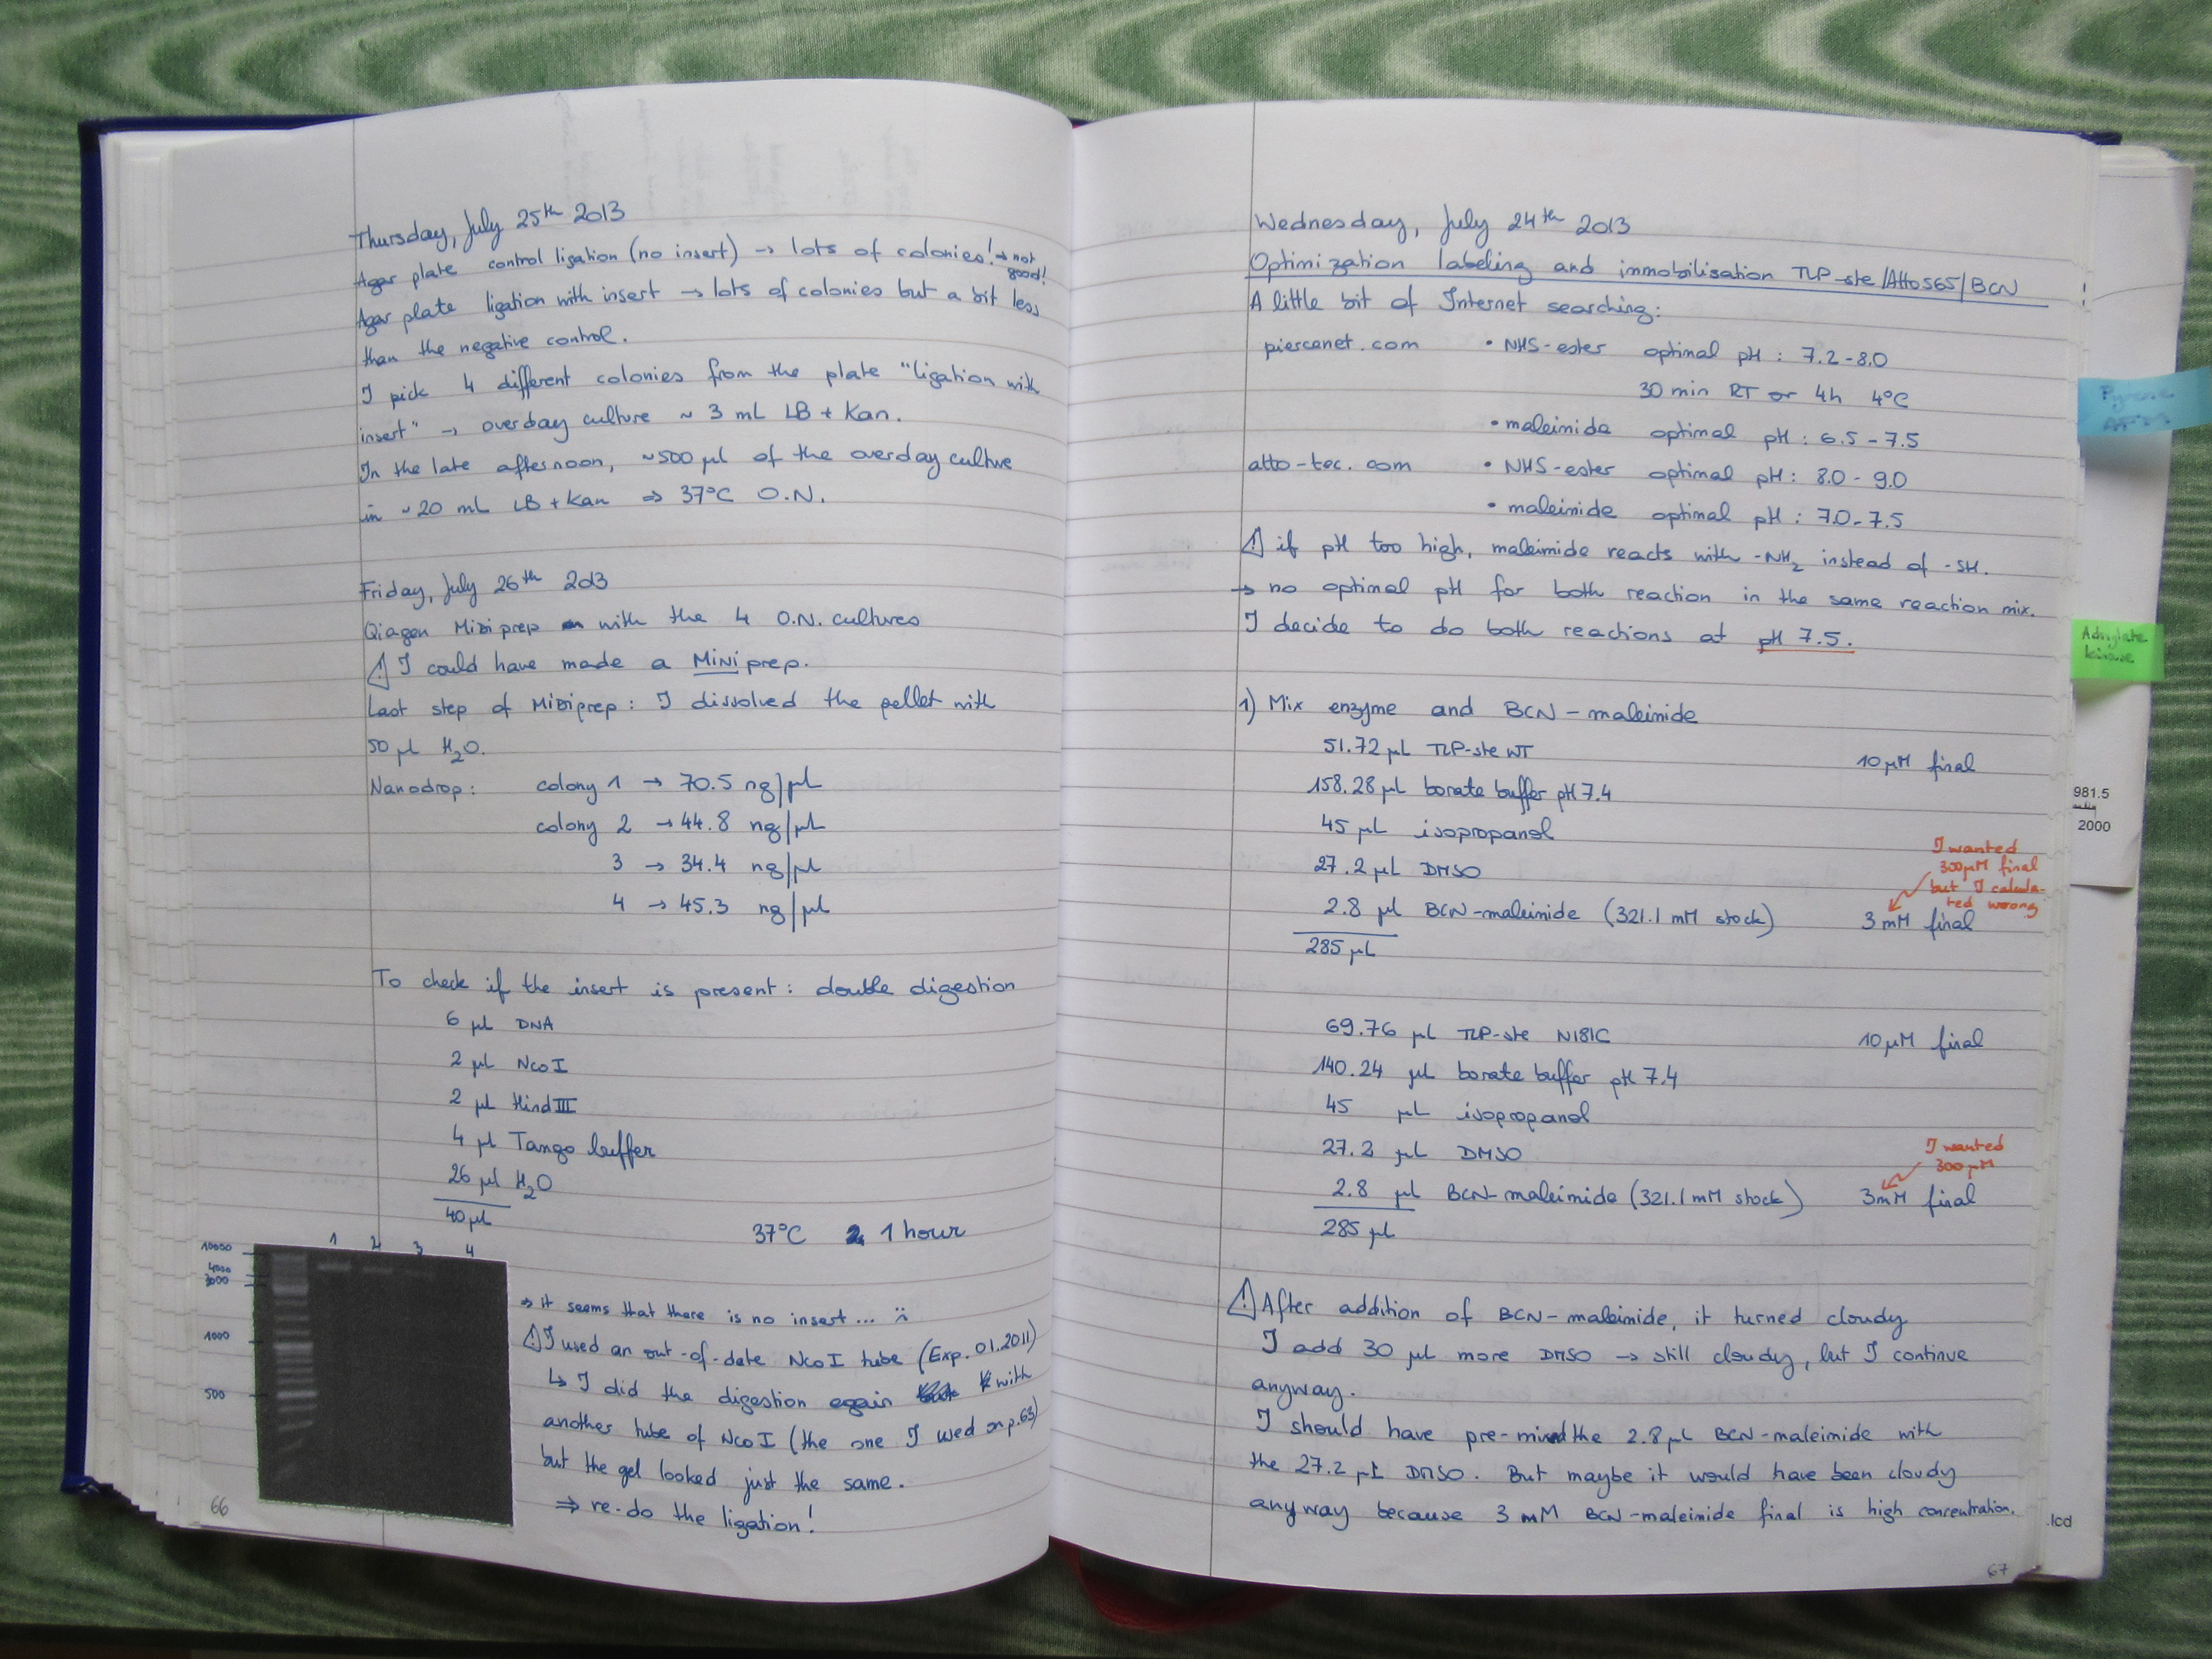 Thursday, July 25th 2013
Agar plate control ligation (no insert) → lots of colonies! → not good!
Agar plate ligation with insert → lots of colonies but a bit less
than the negative control.
I pick 4 different colonies from the plate "ligation with
insert" → overday culture ~ 3 mL LB + Kan.
In the late afternoon, ~500 µl of the overday culture
in ~20 mL LB + Kan ⇒ 37°C O.N.
Friday, July 26th 2013
Qiagen Midiprep with the 4 O.N. cultures
⚠ I could have made a MiNiprep.
Last step of Midiprep: I dissolved the pellet with
50 µl H₂O.
Nanodrop: colony 1 → 70.5 ng/µl
colony 2 → 44.8 ng/µl
3 → 34.4 ng/µl
4 → 45.3 ng/µl
To check if the insert is present: double digestion
6 µl DNA
2 µl NcoI
2 µl HindIII
4 µl Tango buffer
26 µl H₂O
40 µl
37°C 1 hour
1 2 3 4
10000
4000
3000
1000
500
⇒ it seems that there is no insert... :(
⚠ I used an out-of-date NcoI tube (Exp. 01.2011)
↳ I did the digestion again with
another tube of NcoI (the one I used on p.63)
but the gel looked just the same.
⇒ re-do the ligation!
66
Wednesday, July 24th 2013
Optimization labeling and immobilisation TLP-ste/Atto565/BCN
A little bit of Internet searching:
piercenet.com • NHS-ester optimal pH : 7.2-8.0
30 min RT or 4h 4°C
• maleimide optimal pH : 6.5 - 7.5
atto-tec.com • NHS-ester optimal pH : 8.0 - 9.0
• maleimide optimal pH : 7.0 - 7.5
⚠ if pH too high, maleimide reacts with -NH₂ instead of -SH.
→ no optimal pH for both reaction in the same reaction mix.
I decide to do both reactions at pH 7.5.
1) Mix enzyme and BCN-maleimide
51.72 µL TLP-ste WT 10 µM final
158.28 µL borate buffer pH 7.4
45 µL isopropanol
27.2 µL DMSO
I wanted
300µM final
but I calcula-
ted wrong
2.8 µl BCN-maleimide (321.1 mM stock) 3 mM final
285 µL
69.76 µL TLP-ste N181C 10 µM final
140.24 µL borate buffer pH 7.4
45 µL isopropanol
27.2 µL DMSO
I wanted
300 µM
2.8 µl BCN-maleimide (321.1 mM stock) 3mM final
285 µl
⚠ After addition of BCN-maleimide, it turned cloudy
I add 30 µL more DMSO → still cloudy, but I continue
anyway.
I should have pre-mixed the 2.8 µL BCN-maleimide with
the 27.2 µL DMSO. But maybe it would have been cloudy
anyway because 3 mM BCN-maleimide final is high concentration.
67
Adenylate
kinase
981.5
2000
.lcd